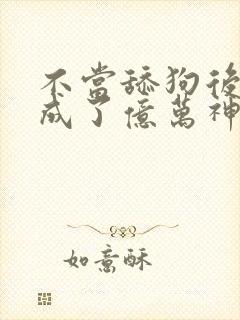 不當舔狗後
成了億萬神
如意酥